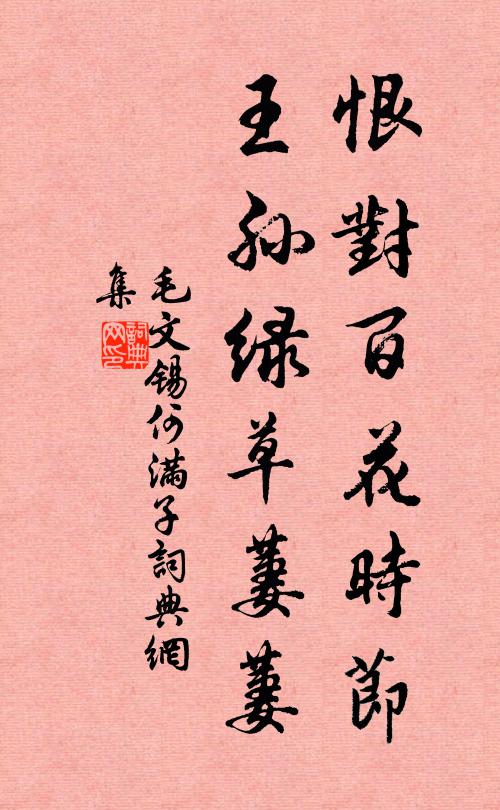 恨對百花時節
王孫緑草萋萋
毛文錫何滿子詞典網
集
詞典網印